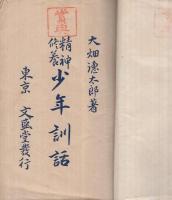 賞与
大畑德太郎著
精神修養 少年訓話
東京 文區堂發行